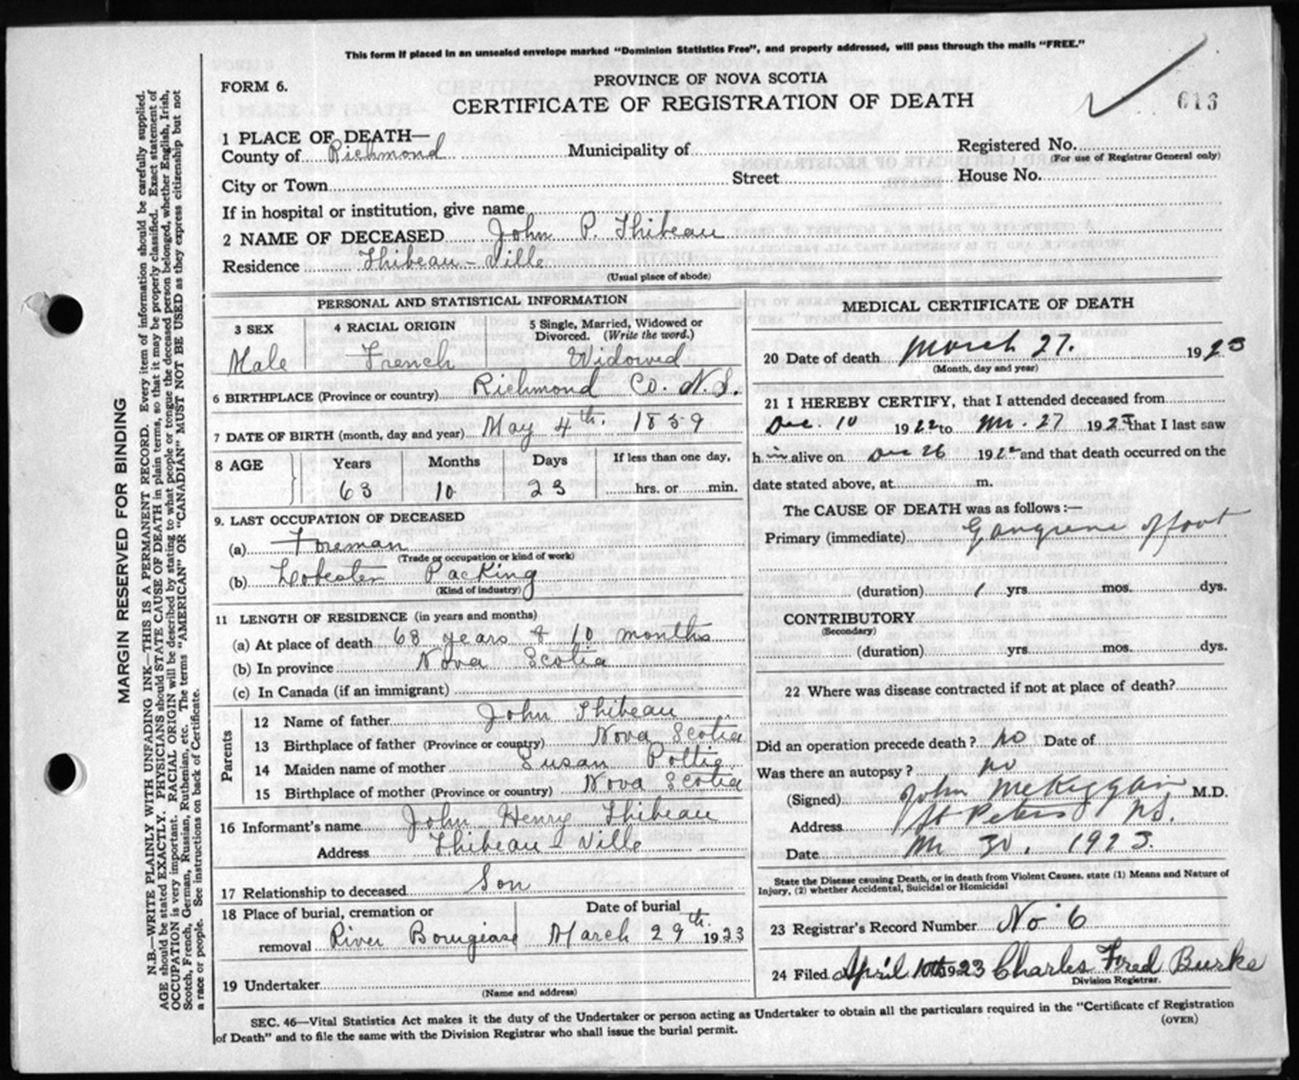 This form if placed in an unsealed envelope marked "Dominion Statistics Free", and properly addressed, will pass through the mails "FREE."
FORM 6.
PROVINCE OF NOVA SCOTIA
CERTIFICATE OF REGISTRATION OF DEATH
613
1 PLACE OF DEATH—
County of Richmond Municipality of
Registered No.
(For use of Registrar General only)
City or Town Street House No.
If in hospital or institution, give name
2 NAME OF DECEASED John P. Thibeau
Residence Thibeau-Ville
(Usual place of abode)
PERSONAL AND STATISTICAL INFORMATION
3 SEX 4 RACIAL ORIGIN 5 Single, Married, Widowed or Divorced. (Write the word.)
Male French Widowed
6 BIRTHPLACE (Province or country) Richmond Co. N.S.
7 DATE OF BIRTH (month, day and year) May 4th. 1859
8 AGE Years Months Days If less than one day,
63 10 23 hrs. or min.
9. LAST OCCUPATION OF DECEASED
(a) Foreman
(Trade or occupation or kind of work)
(b) Lobester Packing
(Kind of industry)
11 LENGTH OF RESIDENCE (in years and months)
(a) At place of death 63 years & 10 months
(b) In province Nova Scotia
(c) In Canada (if an immigrant)
Parents
12 Name of father John Thibeau
13 Birthplace of father (Province or country) Nova Scotia
14 Maiden name of mother Susan
15 Birthplace of mother (Province or country) Nova Scotia
16 Informant's name John Henry Thibeau
Address Thibeau-Ville
17 Relationship to deceased Son
18 Place of burial, cremation or removal River Bourgiase
Date of burial March 29th. 1923
19 Undertaker
(Name and address)
MEDICAL CERTIFICATE OF DEATH
20 Date of death March 27. 1923
(Month, day and year)
21 I HEREBY CERTIFY, that I attended deceased from
Dec. 10 1922 to Mr. 27 192 that I last saw
him alive on Dec 26 1922 and that death occurred on the
date stated above, at m.
The CAUSE OF DEATH was as follows:—
Primary (immediate) Gangrene of foot
(duration) 1 yrs. mos. dys.
CONTRIBUTORY
(Secondary)
(duration) yrs. mos. dys.
22 Where was disease contracted if not at place of death?
Did an operation precede death? no Date of
Was there an autopsy? no
(Signed) John McKiggan M.D.
Address St Peters NS.
Date Mr 30. 1923.
State the Disease causing Death, or in death from Violent Causes, state (1) Means and Nature of
Injury, (2) whether Accidental, Suicidal or Homicidal
23 Registrar's Record Number No 6
24 Filed April 10th 1923 Charles Fred Burke
Division Registrar.
SEC. 46—Vital Statistics Act makes it the duty of the Undertaker or person acting as Undertaker to obtain all the particulars required in the "Certificate of Registration
of Death" and to file the same with the Division Registrar who shall issue the burial permit.
(OVER)
MARGIN RESERVED FOR BINDING
N.B.—WRITE PLAINLY WITH UNFADING INK—THIS IS A PERMANENT RECORD. Every item of information should be carefully supplied.
AGE should be stated EXACTLY. PHYSICIANS should STATE CAUSE OF DEATH in plain terms, so that it may be properly classified. Exact statement of
OCCUPATION is very important. RACIAL ORIGIN will be described by stating to what people or tongue the deceased person belonged, whether English, Irish,
Scotch, French, German, Russian, Ruthenian, etc. The terms "AMERICAN" OR "CANADIAN" MUST NOT BE USED as they express citizenship but not
a race or people. See instructions on back of Certificate.